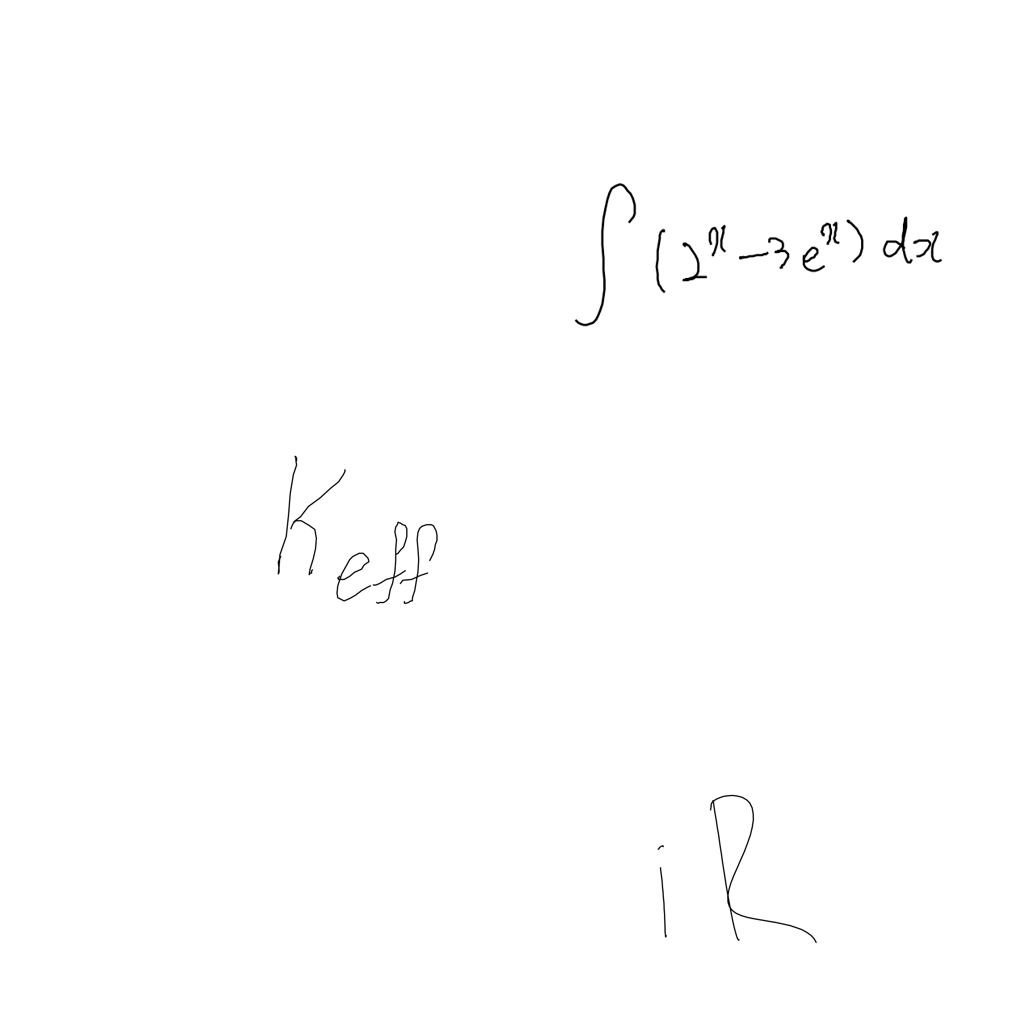 ∫(2^x - 3e^x) dx
K_eff
iR